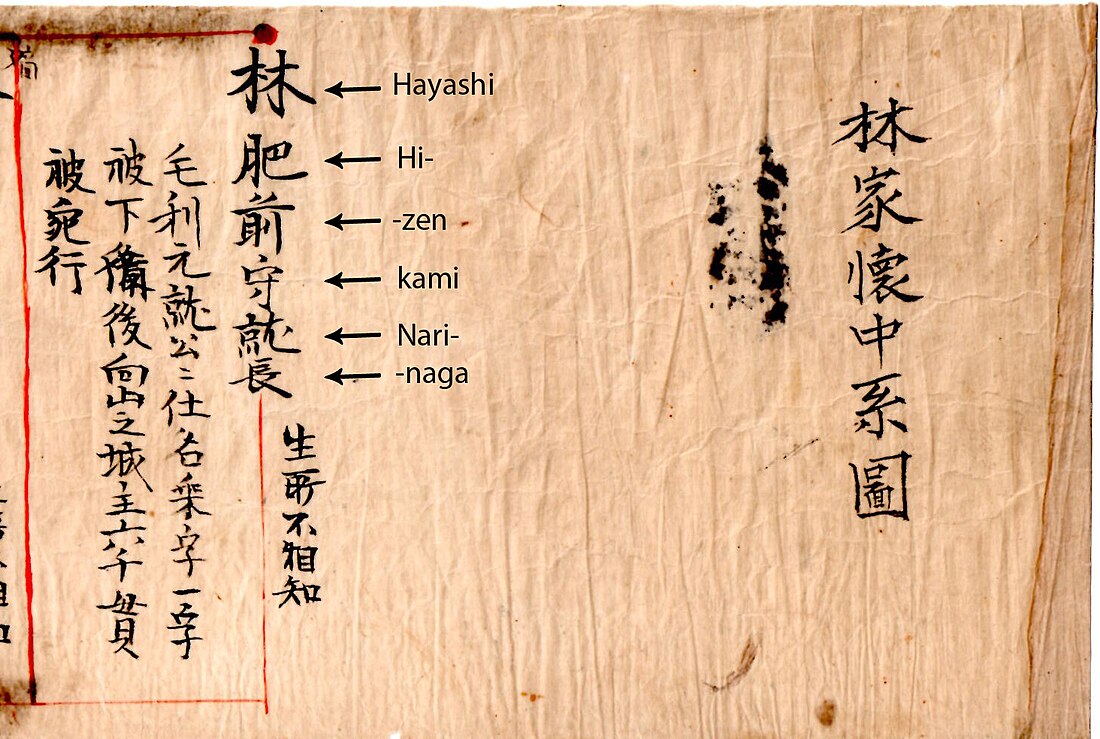 林家懐中系圖
林肥前守就長
Hayashi
Hi-
-zen
kami
Nari-
-naga
生所不相知
毛利元就公ニ仕名乗字一字
被下備後向山之城主六千貫
被宛行